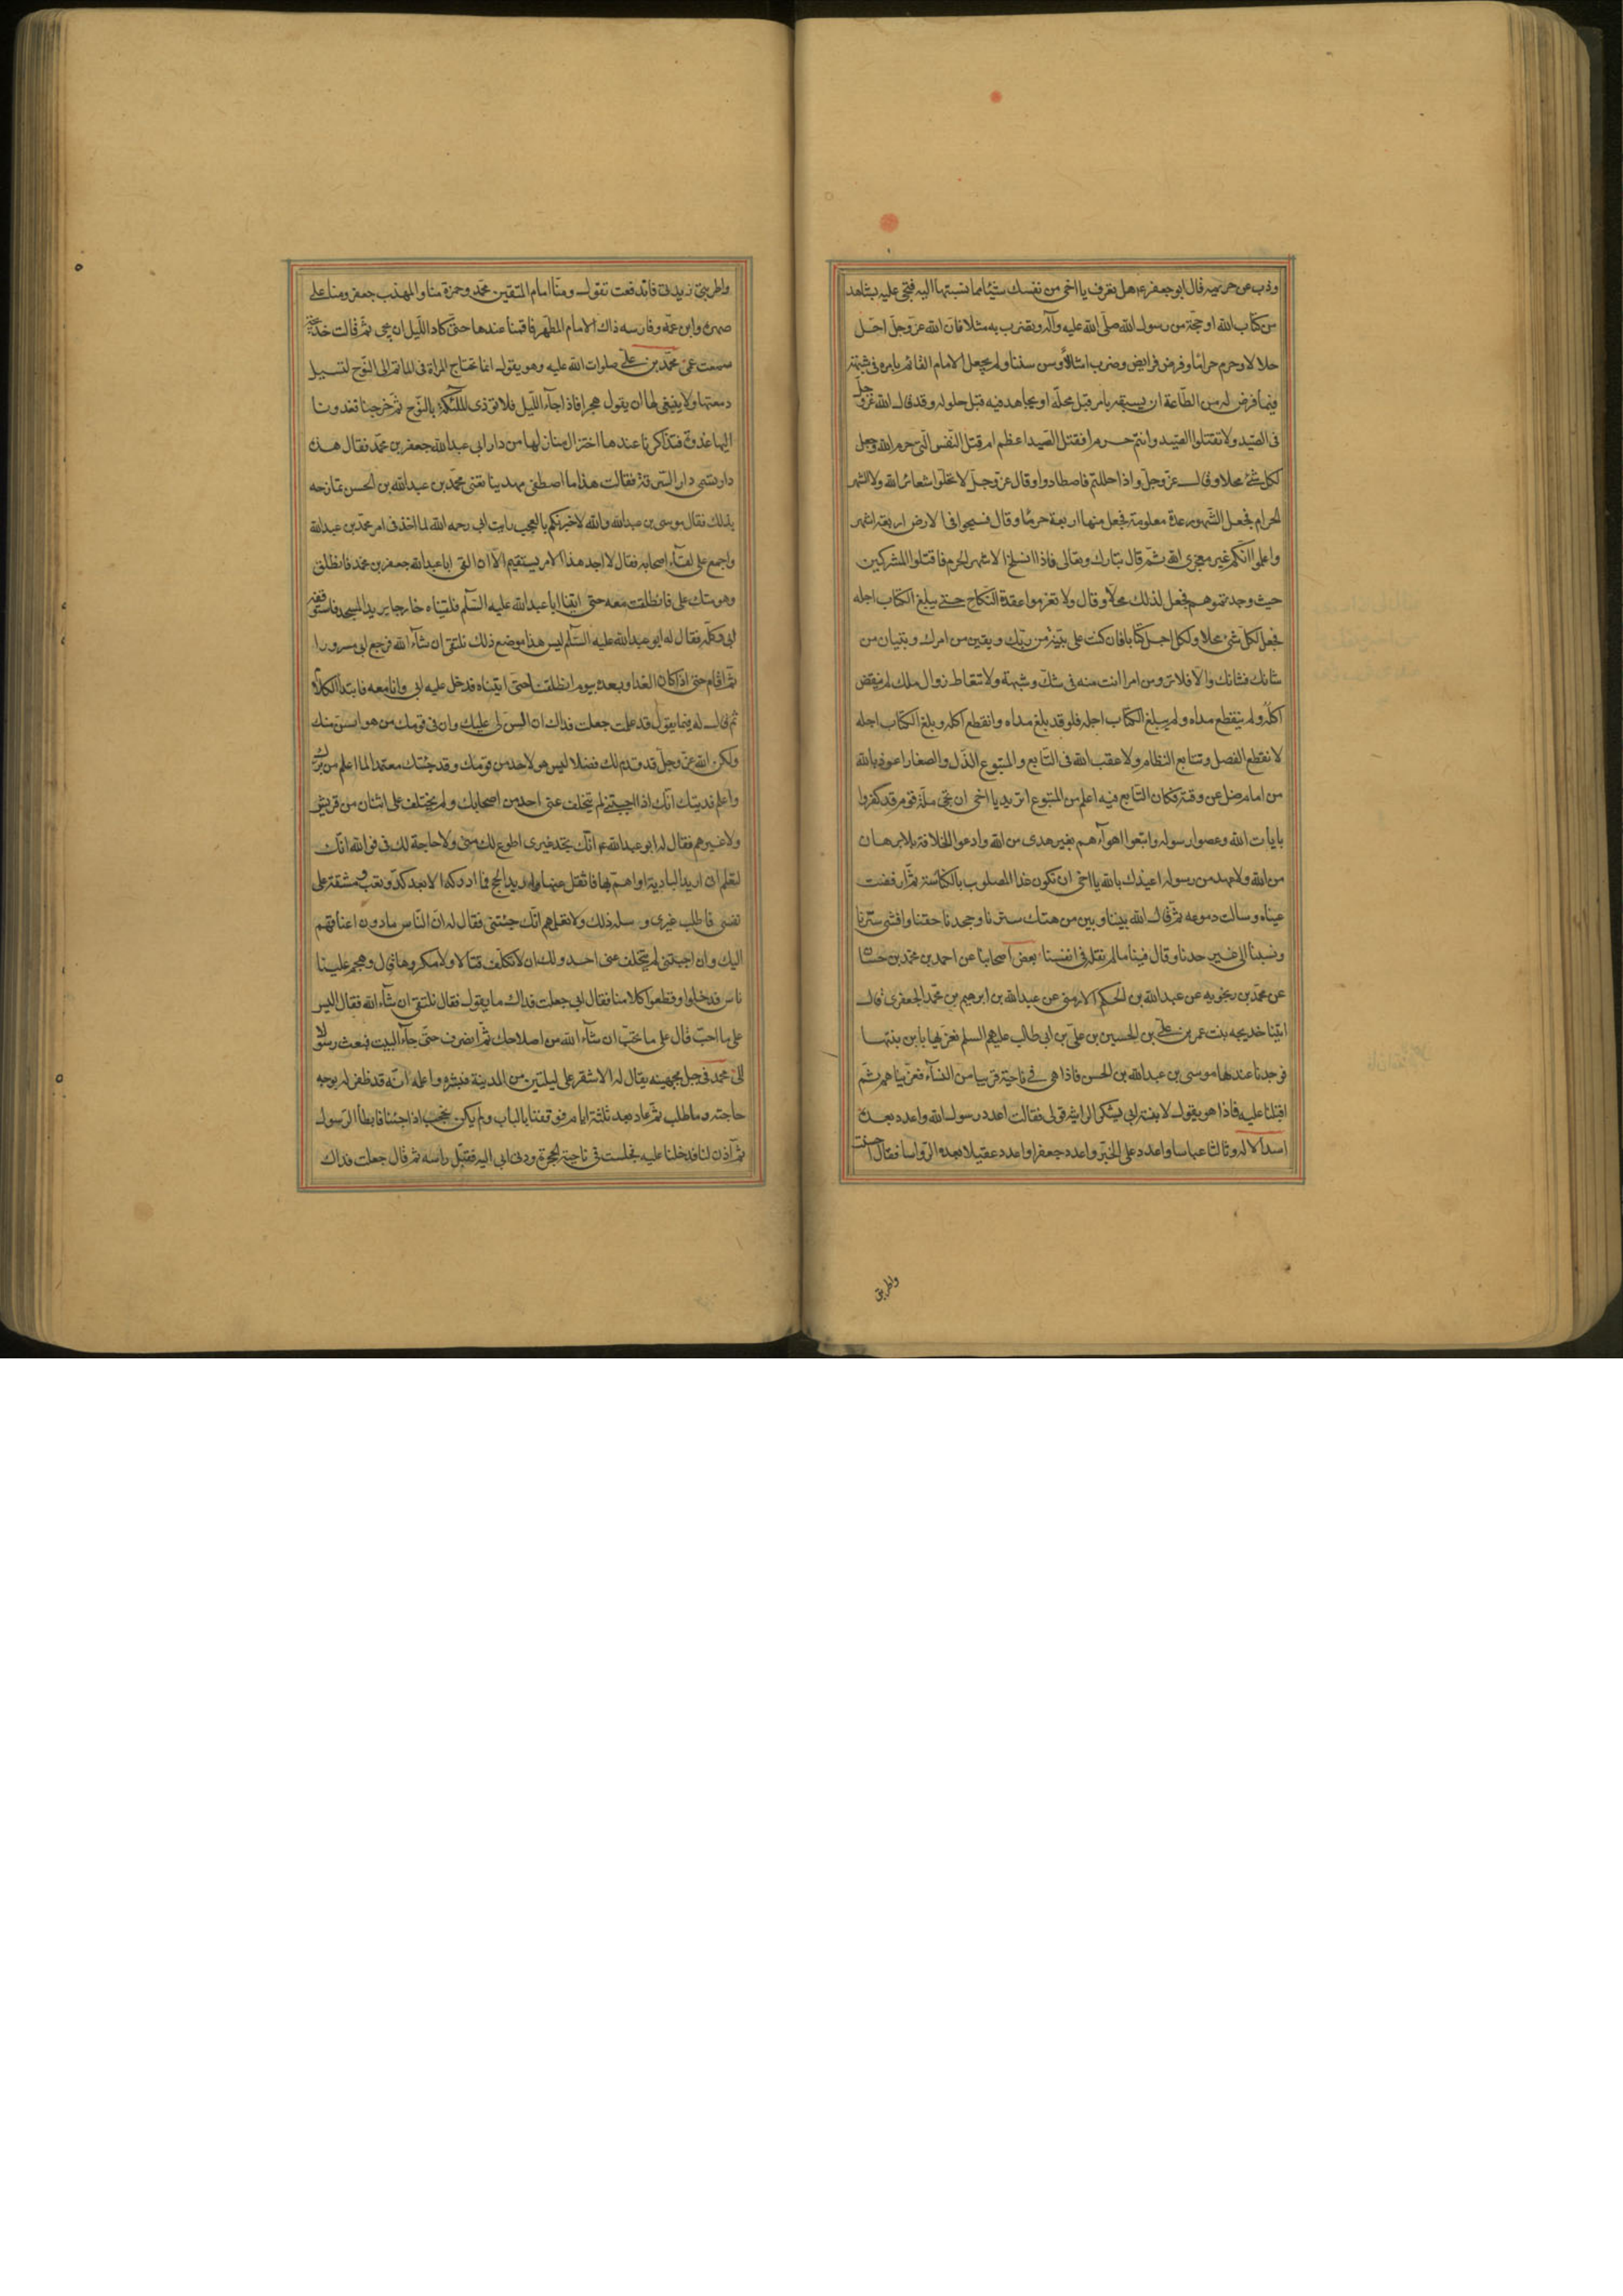 وذب عن حريمه قال ابو جعفر ع هل تعرف يا اخى من نفسك شيئا مما نسبتها اليه فتجى عليه بشاهد
من كتاب الله او حجّة من رسول الله صلّى الله عليه وآله وتضرب به مثلا فانّ الله عزّ وجلّ احّل
حلالا وحرم حراما وفرض فرايض وضرب امثالاً وسن سننا ولم يجعل الامام القائم بامره فى شبهة
فيما فرض له من الطّاعة ان يسبقه بامر قبل محلّه او يجاهد فيه قبل حلوله وقد قال الله عزّ وجلّ
فى الصّيد ولا تقتلوا الصّيد وانتم حرم افقتل الصّيد اعظم ام قتل النّفس الّتى حرم الله وجعل
لكل شئ محلا وقال عزّ وجلّ واذا حللتم فاصطادوا وقال عزّ وجلّ لا تحلّوا شعائر الله ولا الشهر
الحرام فجعل الشّهور عدة معلومة فجعل منها اربعة حرمًا وقال فسيحوا فى الارض اربعة اشهر
واعلموا انّكم غير معجزى الله ثمّ قال تبارك وتعالى فاذا انسلخ الاشهر الحرم فاقتلوا المشركين
حيث وجدتموهم فجعل لذلك محلاّ وقال ولا تعزموا عقدة النّكاح حتى يبلغ الكتاب اجله
فجعل لكلّ شئ محلا ولكلّ اجل كتابا فان كنت على بيّنة من ربّك ويقين من امرك وتبيان من
شانك فشانك والاّ فلا ترومن امرا انت منه فى شكّ وشبهة ولا تتعاط زوال ملك لم ينقض
اكلّه ولم ينقطع مداه ولم يبلغ الكتاب اجله فلو قد بلغ مداه وانقطع اكله وبلغ الكتاب اجله
لانقطع الفصل وتتابع النّظام ولاعقب الله فى التّابع والمتبوع الذّل والصغار اعوذ بالله
من امام ضل عن وقته فكان التّابع فيه اعلم من المتبوع اتريد يا اخى ان تحيى ملّة قوم قد كفروا
بايات الله وعصوا رسوله واتبعوا اهوآءهم بغير هدى من الله وادعوا الخلافة بلا برهان
من الله ولا عهد من رسوله اعيذك بالله يا اخى ان تكون غدا المصلوب بالكناسة ثمّ ارفضت
عيناه وسالت دموعه ثمّ قال الله بيننا وبين من هتك سترنا وجحدنا حقنا وافشى سرّنا
ونسبنا الى غير جدنا وقال فينا ما لم نقله فى انفسنا بعض اصحابنا عن احمد بن محمّد بن حسان
عن محمّد بن رنجويه عن عبد الله بن الحكم الارمنى عن عبد الله بن ابرهيم بن محمّد الجعفرى قال
اتينا خديجه بنت عمر بن على بن الحسين بن علىّ بن ابى طالب عليهم السلم نعزّيها بابن بنتها
فوجدنا عندها موسى بن عبد الله بن الحسن فاذا هى فى ناحية قريبا من النسآء فعزّيناهم ثمّ
اقبلنا عليه فاذا هو يقول لابنة ابى يشكر الراثية قولى فقالت اعدد رسول الله واعدد بعده
اسد الاله وثالثا عباسا واعدد على الخير واعدد جعفرا واعدد عقيلا بعده الرّواسا فقال احسنت
واطربتى
واطربتى زيدينى فاندفعت تقول ومنّا امام المتقين محمّد وحمزة منا والمهذب جعفر ومنا على
صهره وابن عمّه وفارسه ذاك الامام المطهر فاقمنا عندها حتّى كاد اللّيل ان يجى ثمّ قالت خديجة
سمعت عمّى محمّد بن على صلوات الله عليه وهو يقول انما تحتاج المراة فى الماتم الى النّوح لتسيل
دمعتها ولا ينبغى لها ان يقول هجرا فاذا جآء اللّيل فلا تؤذى الملئكة بالنّوح ثمّ خرجنا فغدونا
اليها غدوة فتذاكرنا عندها اختزال منزلها من دار ابى عبد الله جعفر بن محمّد فقال هذه
دار تسمى دار السّرقة فقالت هذا ما اصطفى مهدينا تعنى محمّد بن عبد الله بن الحسن تمازحه
بذلك فقال موسى بن عبد الله والله لاخبرنكم بالعجب رايت ابى رحمه الله لما اخذ فى امر محمّد بن عبد الله
واجمع على لقآء اصحابه فقال لا اجد هذا الامر يستقيم الاّ ان القى ابا عبد الله جعفر بن محمّد فانطلق
وهو متك على فانطلقت معه حتى اتينا ابا عبد الله عليه السّلم فلقيناه خارجا يريد المسجد فاستوقفه
ابى وكلّمه فقال له ابو عبد الله عليه السّلم ليس هذا موضع ذلك نلتقى ان شآء الله فرجع ابى مسرورا
ثمّ اقام حتى اذا كان الغد او بعده بيوم انطلقنا حتّى اتيناه فدخل عليه ابى وانا معه فابتدا الكلام
ثم قال له فيما يقول قد علمت جعلت فداك ان السن لى عليك وان فى قومك من هو اسنّ منك
ولكن الله عزّ وجلّ قد قدم لك فضلا ليس هو لاحد من قومك وقد جئتك معتمدا لما اعلم من برّك
واعلم فديتك انّك اذا اجبتنى لم يتخلف عنى احد من اصحابك ولم يختلف على اثنان من قريش
ولا غيرهم فقال له ابو عبد الله ع انّك تجد غيرى اطوع لك منى ولا حاجة لك فى فوالله انّك
لتعلم انى اريد البادية او اهم بها فاثقل عنها واريد الحج فما ادركه الا بعد كدّ وتعب ومشقة على
نفسى فاطلب غيرى وسله ذلك ولا تعلمهم انّك جئتنى فقال له انّ النّاس مادون اعناقهم
اليك وان اجبتنى لم يتخلف عنى احد ولك ان لا تكلّف قتالا ولا مكروها قال وهجم علينا
ناس فدخلوا وقطعوا كلامنا فقال ابى جعلت فداك ما يقول فقال نلتقى ان شآء الله فقال اليس
على ما احبّ قال على ما تحبّ ان شآء الله من اصلاحك ثمّ انصرف حتّى جآء البيت فبعث رسولا
الى محمد فى جبل بجهينه يقال له الاشقر على ليلتين من المدينة فبشره واعلمه انّه قد ظفر له بوجه
حاجته وما طلب ثمّ عاد بعد ثلثة ايام فوقفنا بالباب ولم يكن نحجب اذا جئنا فابطأ الرّسول
ثمّ اذن لنا فدخلنا عليه فجلست فى ناحية الحجرة ودنى ابى اليه فقبّل راسه ثمّ قال جعلت فداك